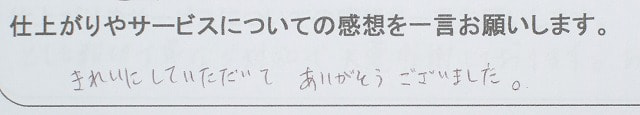 仕上がりやサービスについての感想を一言お願いします。
きれいにしていただいて ありがとうございました。